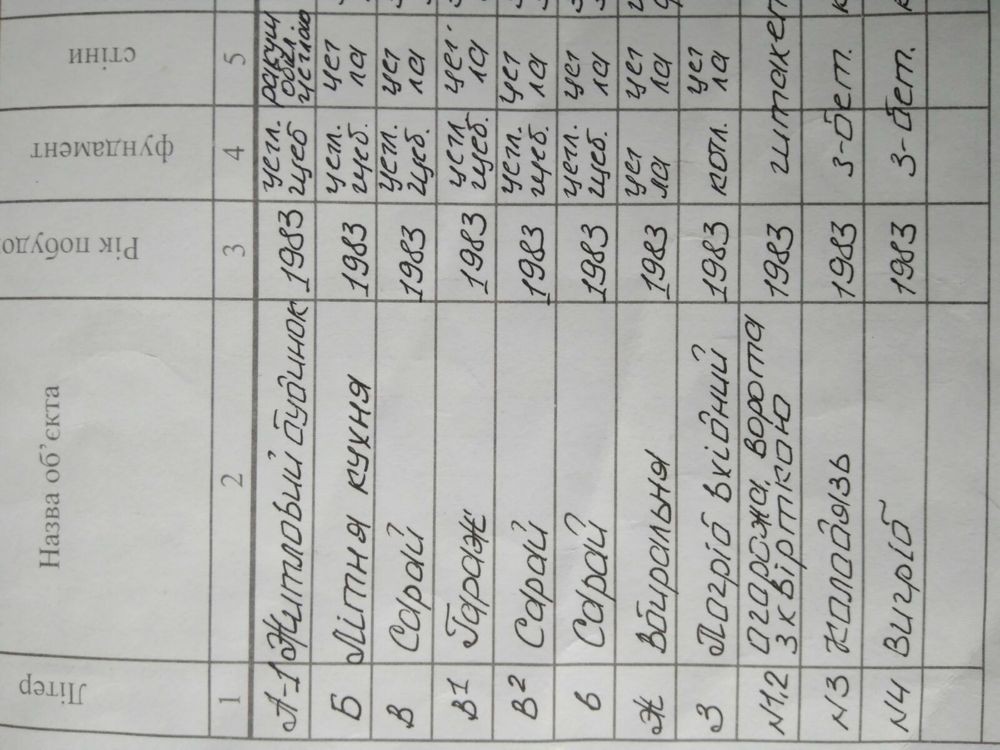 Літер Назва об'єкта Рік побудо фундамент стіни
1 2 3 4 5
А-1 Житловий будинок 1983 цегл. щеб ракуш обл. цеглою
Б Літня кухня 1983 цегл. щеб. цег ла
В Сарай 1983 цегл. щеб. цег ла
В1 Гараж 1983 цегл щеб. цег- ла
В2 Сарай 1983 цегл. щеб. цег ла
в Сарай 1983 цегл. щеб. цег ла
Ж Вбиральня 1983 цег ла цег ла
З Погріб вхідний 1983 котл. цег ла
N1,2 Огорожа, ворота
з хвірткою 1983 штакет
N3 Колодязь 1983 з-бет.
N4 Вигріб 1983 з-бет.